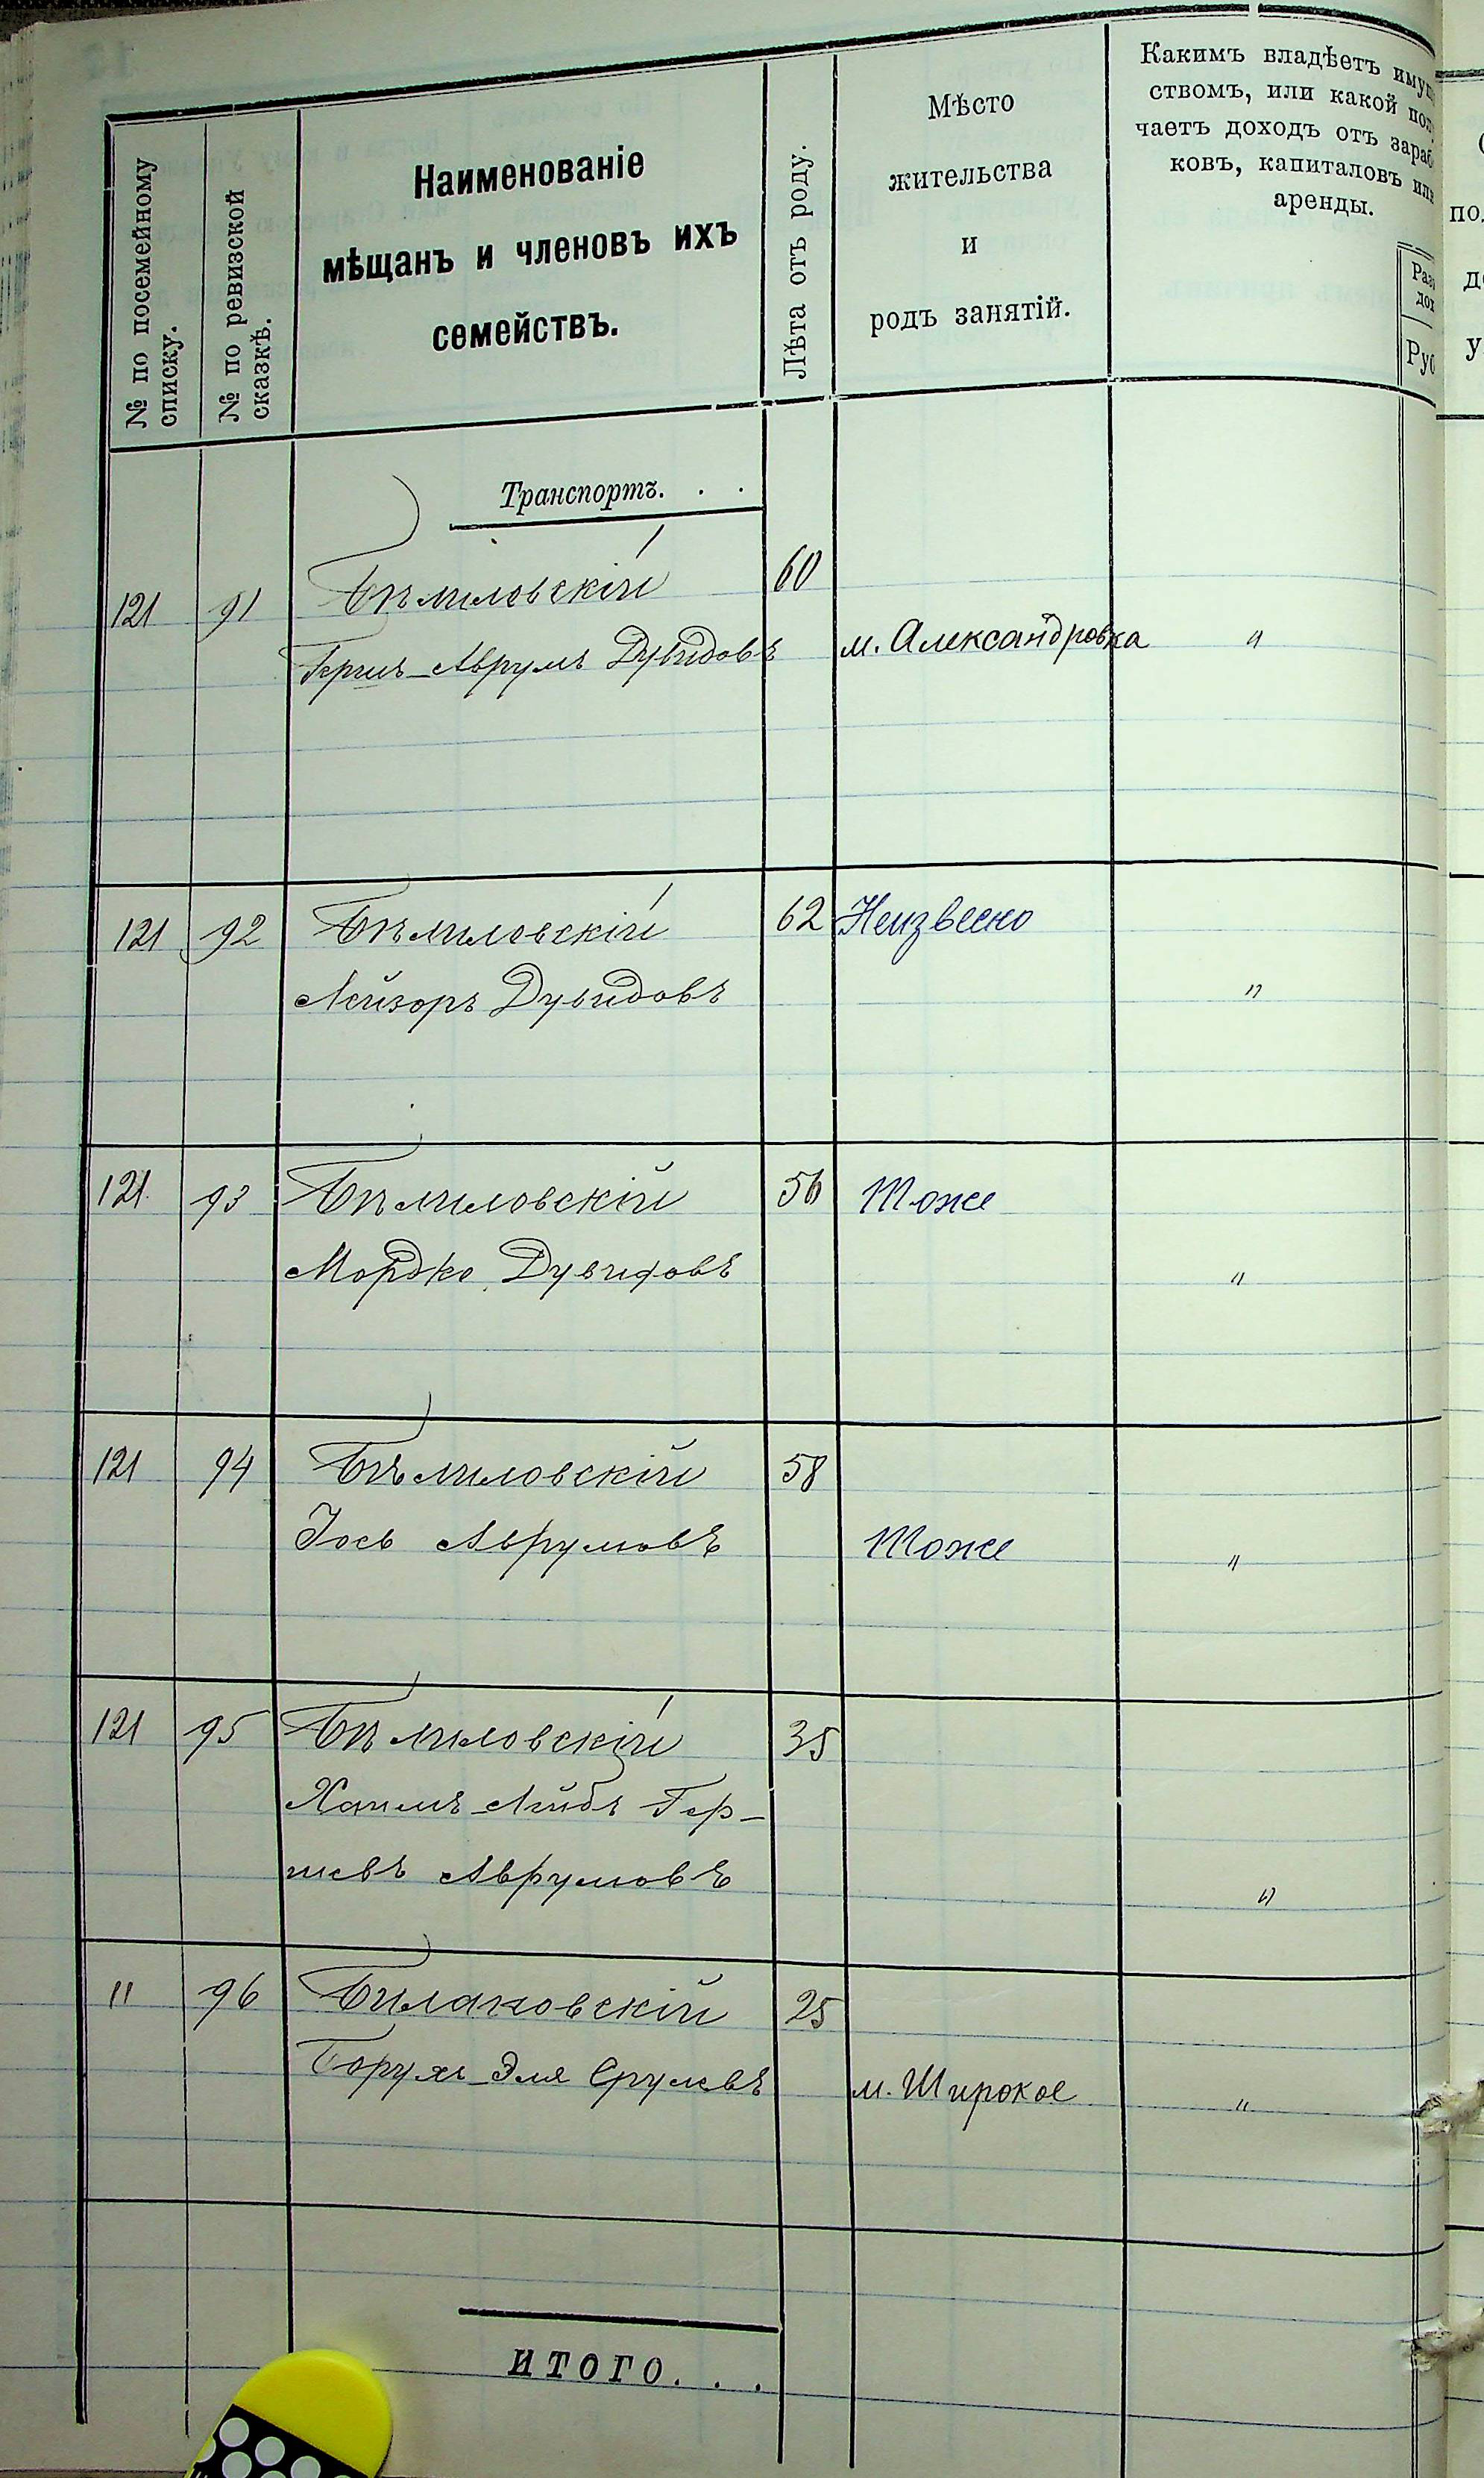 № по посемейному
списку.
№ по ревизской
сказкѣ.
Наименованіе
мѣщанъ и членовъ ихъ
семействъ.
Лѣта отъ роду.
Мѣсто
жительства
и
родъ занятій.
Какимъ владѣетъ имущ
ствомъ, или какой пол
чаетъ доходъ отъ зараб
ковъ, капиталовъ или
аренды.
Раз
дох
Руб
Транспортъ. . .
121 91 Бѣлиловскій 60
Гершъ-Аврумъ Дувидовъ м. Александровка "
121 92 Бѣлиловскій 62 Неизвесно
Лейзоръ Дувидовъ "
121 93 Бѣлиловскій 56 Тоже
Мордко Дувидовъ "
121 94 Бѣлиловскій 58
Іось Аврумовъ Тоже "
121 95 Бѣлиловскій 35
Хаимъ-Лейбъ Гер-
шевъ Аврумовъ "
11 96 Билаковскій 25
Борухъ-Эля Срулевъ м. Широкое "
ИТОГО. . .